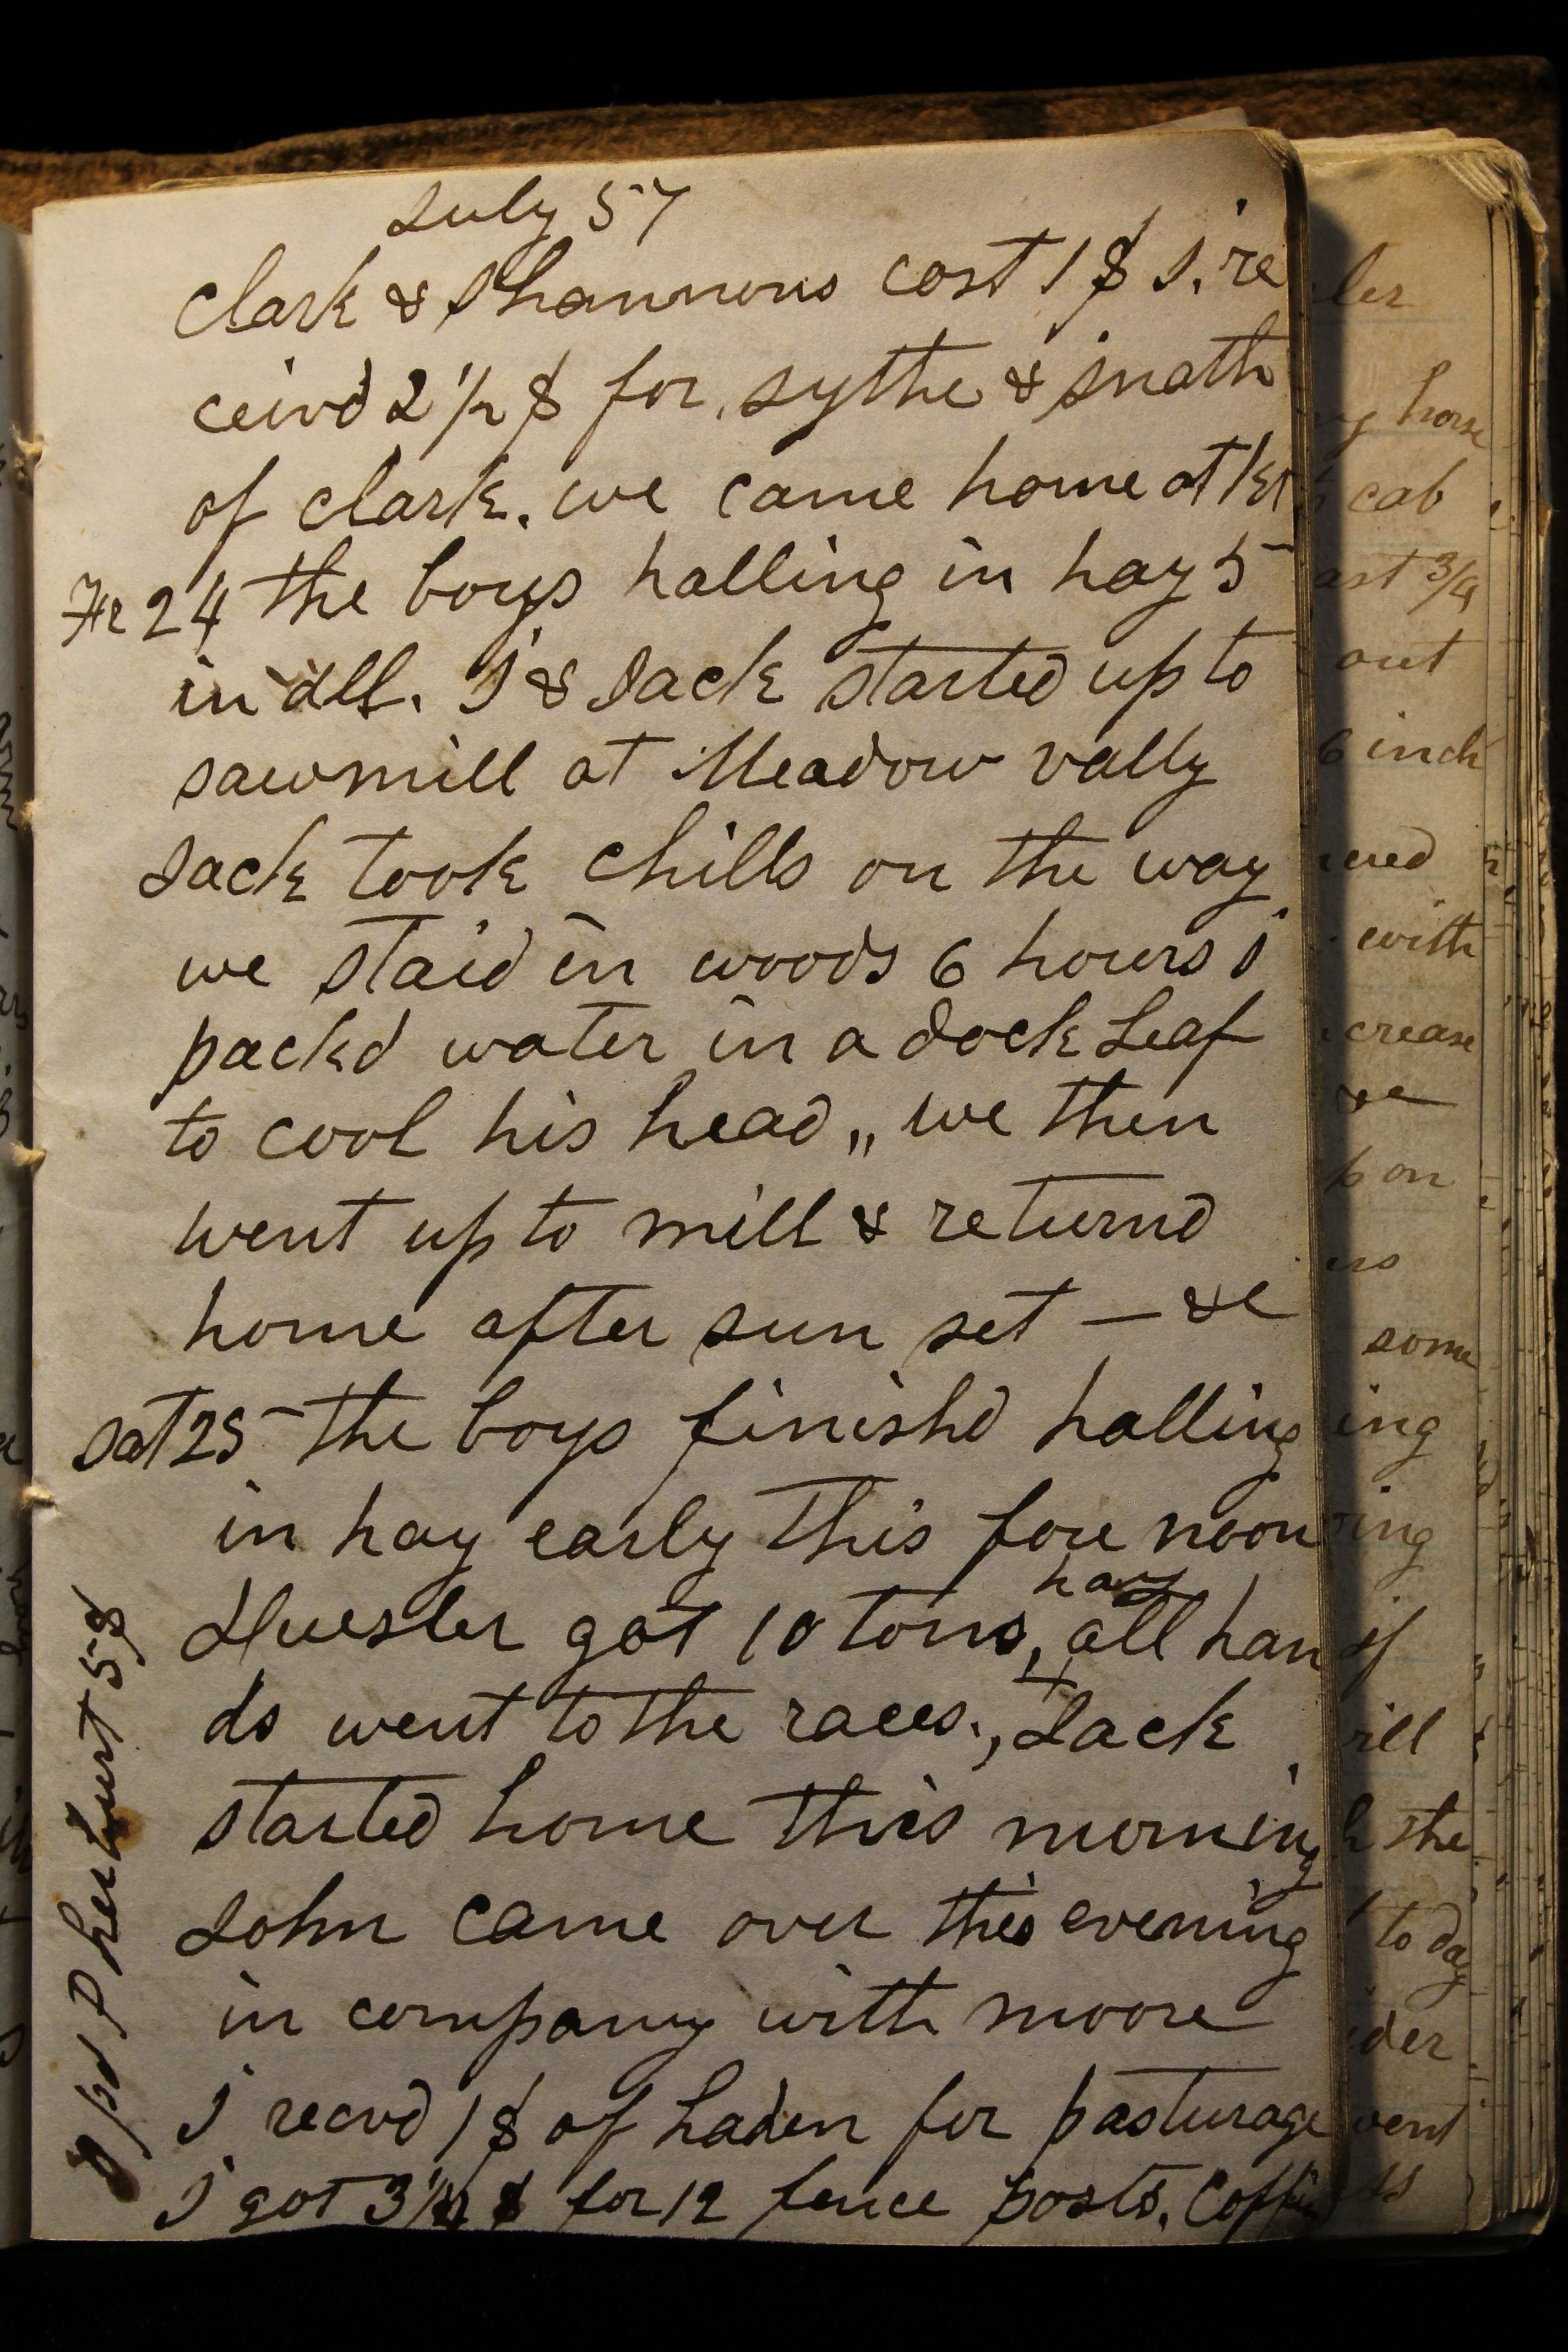 July 57
Clark & Shannons cost 1 $ I. re
ceivd 2 1/2 $ for sythe & snath
of clark. we came home at
Fr 24 the boys halling in hay 5
in all. I & Jack started up to
sawmill at Meadow vally
Jack took chills on the way
we staid in woods 6 hours i
packd water in a dock Leaf
to cool his head ,, we then
went up to mill & returnd
home after sun set — &c
sat 25 the boys finishd halling
in hay early this fore noon
hay
Huesler got 10 tons, all han
ds went to the races., Jack
started home this morning
John came over this evening
in company with moore
I recvd 1 $ of haden for pasturage
I got 3 $ for 12 fence posts. Coffin
I pd P herburt 5 $
ler
horse
cab
3/4
out
6 inch
ered
with
crease
&c
on
some
ing
ing
if
ill
the
to day
ider
vent